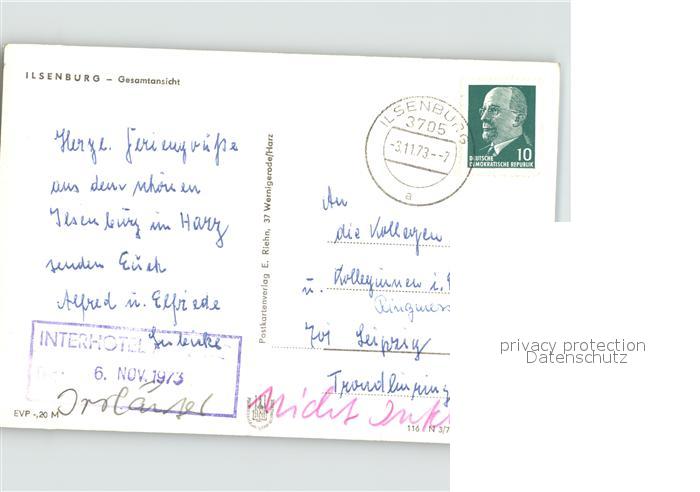 ILSENBURG – Gesamtansicht
Herzl. Feriengrüße
aus dem schönen
Ilsenburg im Harz
senden Euch
Alfred u. Elfriede
INTERHOTEL
6. NOV. 1973
EVP -,20 M
Postkartenverlag E. Riehn, 37 Wernigerode/Harz
ILSENBURG
3705
-3.11.73--7
a
10
DEUTSCHE
DEMOKRATISCHE REPUBLIK
An
die Kollegen
u. Kolleginnen i.
701 Leipzig
Tröndlinring
Nicht
116
privacy protection
Datenschutz